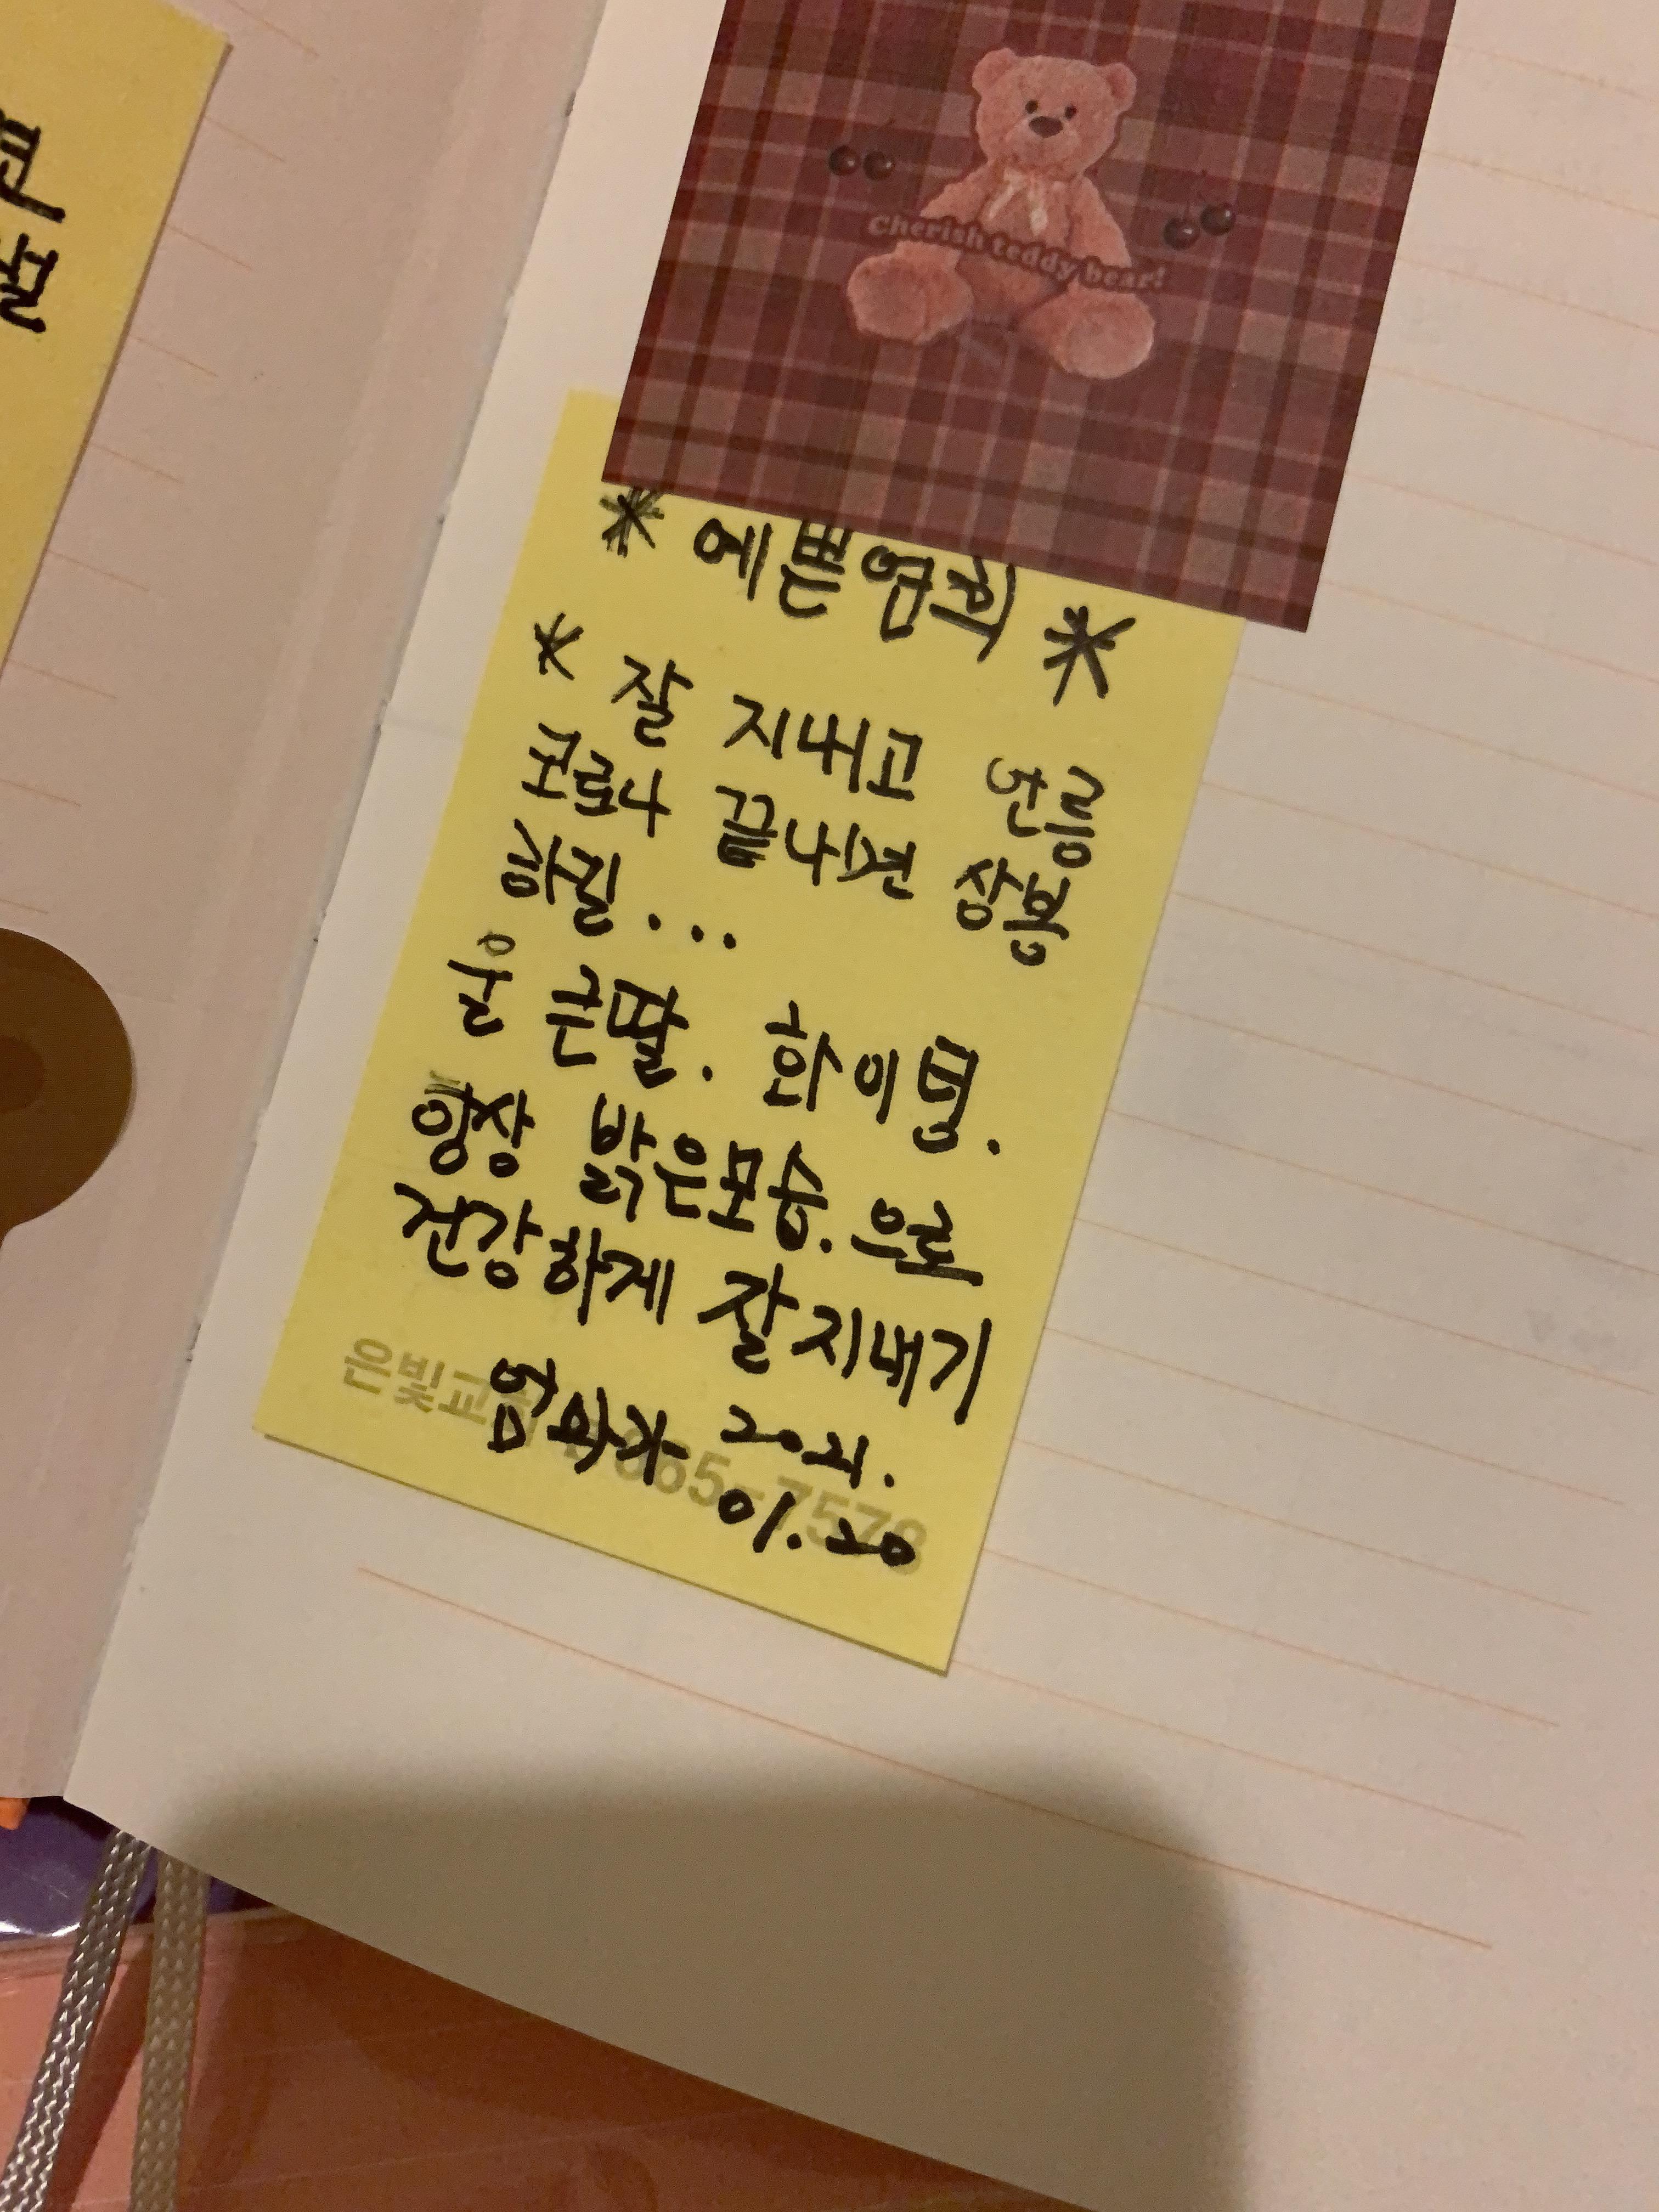 Cherish teddy bear!
* 예쁜연희 *
* 잘 지내고 언릉
코로나 끝나면 상봉
하길...
울 큰딸. 화이팅.
항상 밝은모습.으로
건강하게 잘지내기
엄마가 2021.
01.20
은빛교회 665-7578